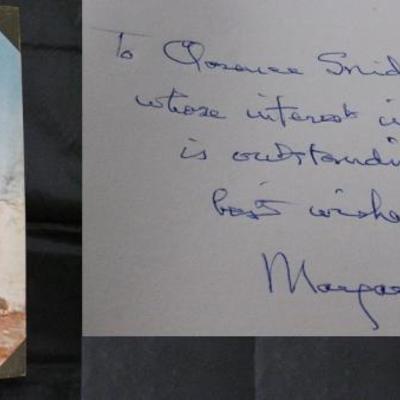 To Clarence Snid
whose interest i
is outstandi
best wishe
Margar